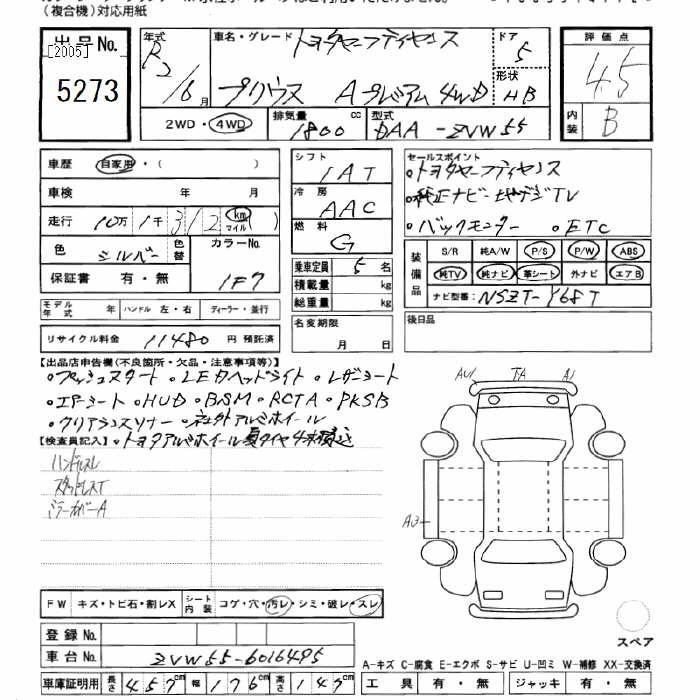 (複合機)対応用紙
出品No.
[2005]
5273
年式
R2/6月
車名・グレード
トヨタセーフティセンス
プリウス Aプレミアム 4WD
ドア
5
形状
HB
評価点
4.5
内装
B
2WD・4WD
排気量
1800 cc
型式
DAA-ZVW55
車歴 自家用・( )
車検 年 月
走行 10万1千312 km マイル ( )
色 シルバー 色替
カラーNo.
1F7
保証書 有・無
シフト
IAT
冷房
AAC
燃料
G
乗車定員 5名
積載量 kg
総重量 kg
セールスポイント
・トヨタセーフティセンス
・純正ナビ・地デジTV
・バックモニター ・ETC
装備品
S/R 純A/W P/S P/W ABS
純TV 純ナビ 革シート 外ナビ エアB
ナビ型番: NSZT-Y68T
モデル年式 年 ハンドル 左・右 ディーラー・並行
名変期限
月 日
後日品
リサイクル料金 11480 円 預託済
【出品店申告欄(不良箇所・欠品・注意事項等)】
・プッシュスタート ・LEDヘッドライト ・レザーシート
・エアーシート ・HUD ・BSM ・RCTA ・PKSB
・クリアランスソナー ・社外アルミホイール
【検査員記入】 ・トヨタアルミホイール夏タイヤ4本積込
ハンドルスレ
スタッドレスT
ミラーカバーA
AU1 TA A1
A3
FW キズ・トビ石・割レX
シート内装 コゲ・穴・汚レ・シミ・破レ・スレ
登録No.
車台No. ZVW55-6016495
車庫証明用 長さ 457cm 幅 176cm 高さ 147cm
スペア
A-キズ C-腐食 E-エクボ S-サビ U-凹ミ W-補修 XX-交換済
工具 有・無 ジャッキ 有・無